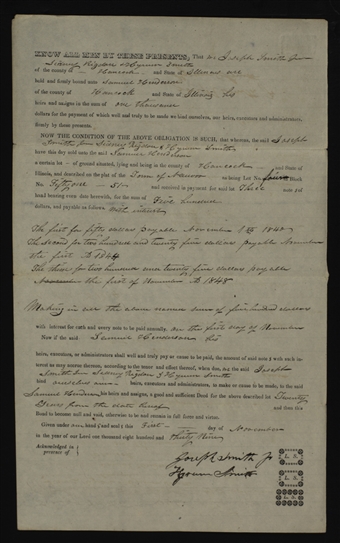 KNOW ALL MEN BY THESE PRESENTS, That we Joseph Smith Junr
Sidney Rigdon & Hyrum Smith
of the county of Hancock and State of Illinois are
held and firmly bound unto Samuel
of the county of Hancock and State of Illinois his
heirs and assigns in the sum of one thousand
dollars for the payment of which well and truly to be made we bind ourselves, our heirs, executors and administrators,
firmly by these presents.
NOW THE CONDITION OF THE ABOVE OBLIGATION IS SUCH, that whereas, the said Joseph
Smith Jun Sidney Rigdon & Hyrum Smith
have this day sold unto the said Samuel
a certain lot of ground situated, lying and being in the county of Hancock and State of
Illinois, and described on the plat of the Town of Nauvoo as being Lot No. four Block
No. Fifty one 51 and received in payment for said lot Three note s of
hand bearing even date herewith, for the sum of Five hundred
dollars, and payable as follows with interest
The first for fifty dollars payable November 1st 184
The second for two hundred and twenty five dollars payable November
the first AD 184
The third for two hundred and twenty five dollars payable
the first of November AD 1848
Making in all the above named sum of five hundred dollars
with interest for each and every note to be paid annually. on the first day of November
Now if the said Samuel his
heirs, executors, or administrators shall well and truly pay or cause to be paid, the amount of said note s with such in-
terest as may accrue thereon, according to the tenor and effect thereof, when due, and the said Joseph
Smith Jun Sidney Rigdon & Hyrum Smith
bind ourselves our heirs, executors, and administrators, to make or cause to be made, to the said
Samuel his heirs and assigns, a good and sufficient Deed for the above described lot
years from the date hereof and then this
Bond to become null and void, otherwise to be and remain in full force and virtue.
Given under our hand s and seal s this First day of November
in the year of our Lord one thousand eight hundred and thirty Nine
Acknowledged in
presence of
Joseph Smith Jr L. S.
Hyrum Smith L. S.
L. S.